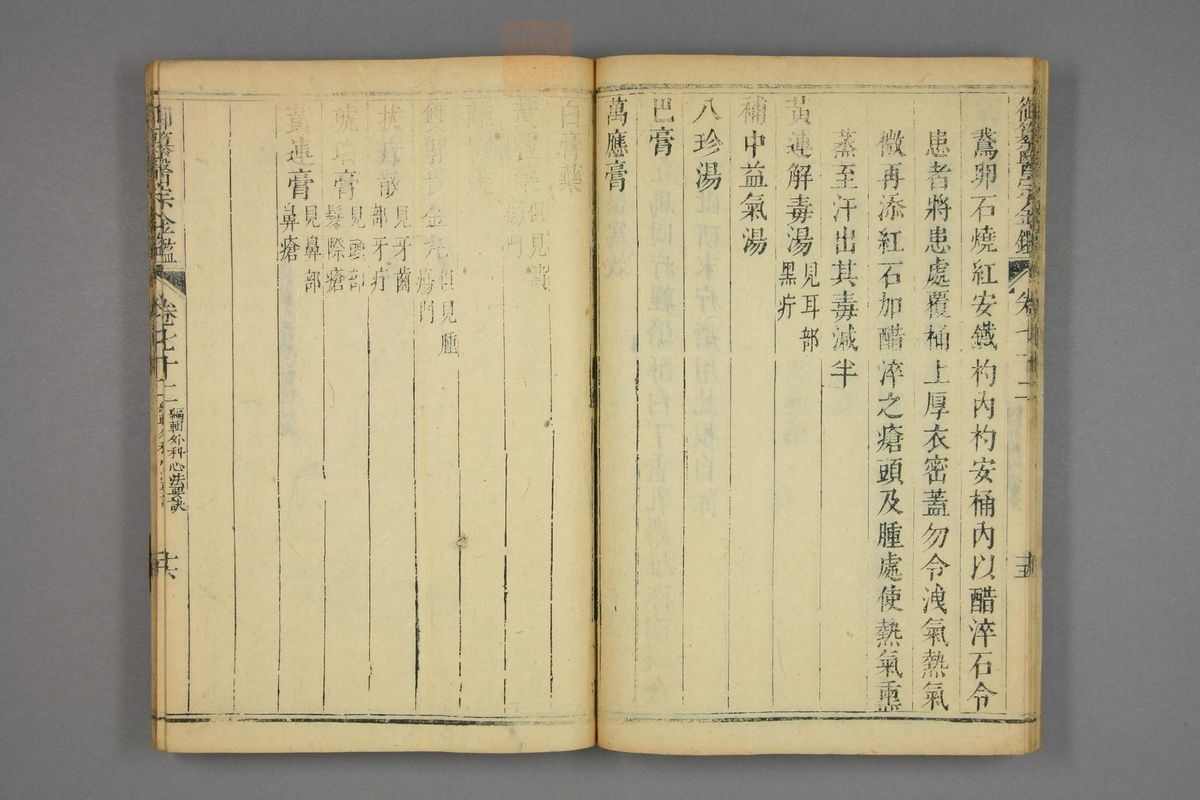 御纂醫宗金鑑 卷七十二 十五
鵞卵石燒紅安鐵杓內杓安桶內以醋淬石令
患者將患處覆桶上厚衣密蓋勿令洩氣熱氣
微再添紅石加醋淬之瘡頭及腫處使熱氣熏
蒸至汗出其毒減半
黃連解毒湯 見耳部黑疔
補中益氣湯
八珍湯
巴膏
萬應膏
白膏藥 俱見潰瘍門
金丸 俱見腫瘍門
散 見牙齒部牙疔
琥珀膏 見頭部髮際瘡
黃連膏 見鼻部鼻瘡
御纂醫宗金鑑 卷七十二 編輯外科心法要訣 十六